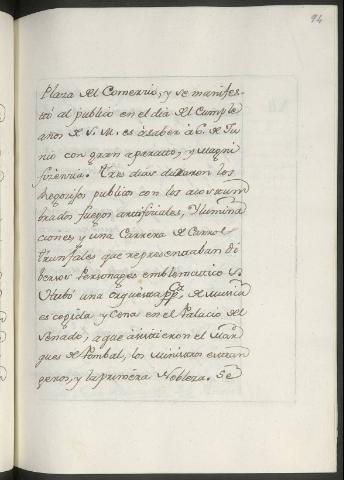 94
Plaza del Comercio, y se manifes-
tó al publico en el dia del Cumple
años de S. M. es à saber à 6. de Ju
nio con gran aparatto, y Magni
ficencia. Tres dias duraron los
Regosijos publicos con los acostum
brados fuegos artificiales, Ylumina
ciones y una Carrera de Carros
trunfales que representtaban di
bersos Personages emblematticos
Hubó una orquestta de Musica
escogida y Cena en el Palacio del
Senado, a que asisttieron el Mar
ques de Pombal, los Ministros estran
geros, y la primera Nobleza. Se